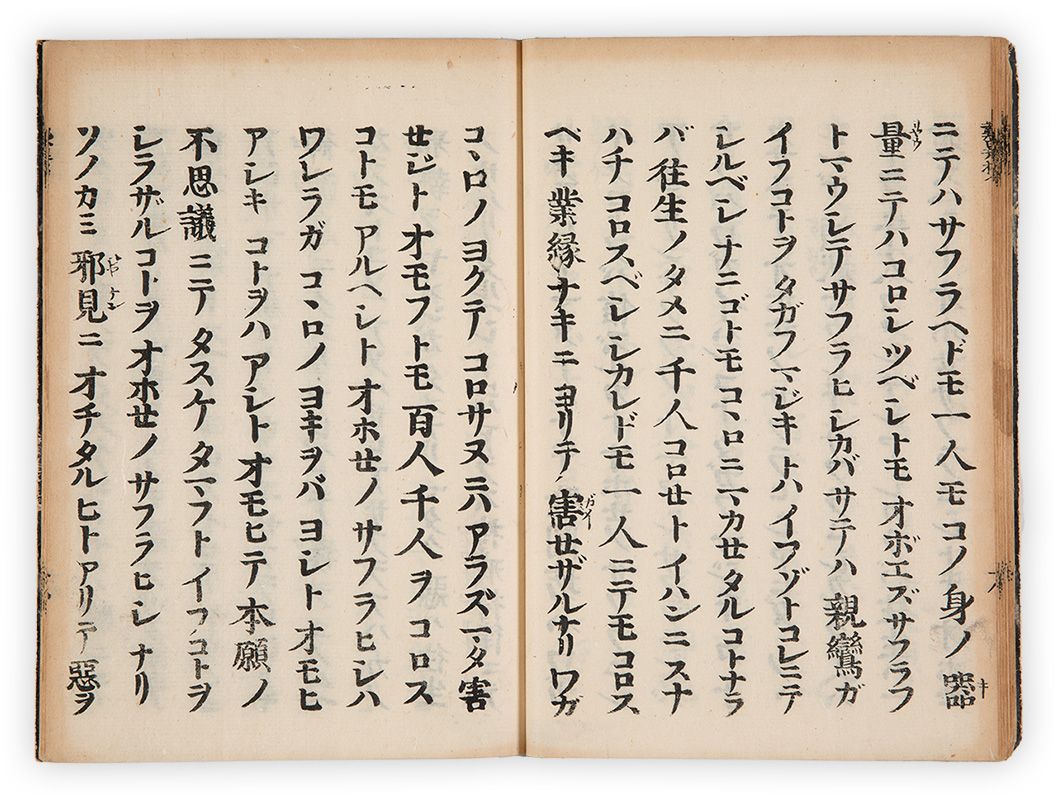 ニテハサフラヘドモ一人モコノ身ノ器
量ニテハコロシツベシトモオボエズサフラフ
トマウシテサフラヒシカバサテハ親鸞ガ
イフコトヲタガフマジキトハイフゾトコレニテ
シルベシナニゴトモコヽロニマカセタルコトナラ
バ往生ノタメニ千人コロセトイハンニスナ
ハチコロスベシシカレドモ一人ニテモコロス
ベキ業縁ナキニヨリテ害セザルナリワガ
コヽロノヨクテコロサヌニハアラズマタ害
セジトオモフトモ百人千人ヲコロス
コトモアルヘシトオホセノサフラヒシハ
ワレラガコヽロノヨキヲバヨシトオモヒ
アシキコトヲハアシトオモヒテ本願ノ
不思議ニテタスケタマフトイフコトヲ
シラザルコトヲオホセノサフラヒシナリ
ソノカミ邪見ニオチタルヒトアリテ惡ヲ